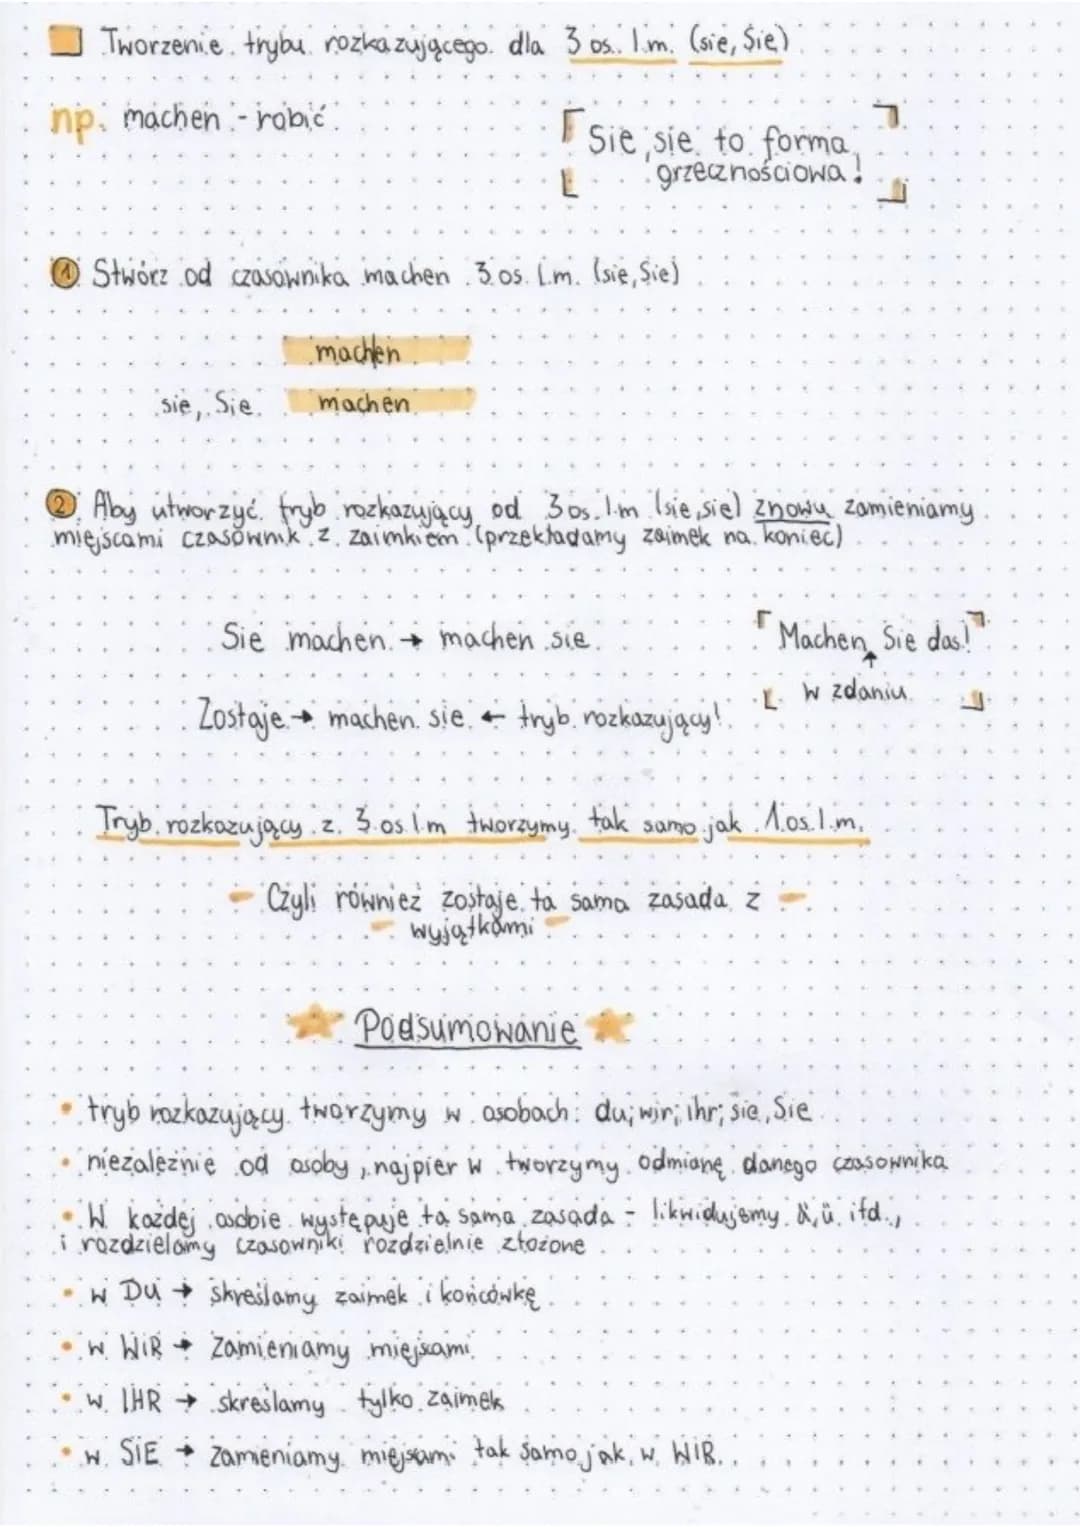 Tworzenie trybu rozkazującego dla 3 os. l.m. (sie, Sie)
np. machen - robić
Sie, sie to forma
grzecznościowa!
1 Stwórz od czasownika machen 3 os. l.m. (sie, Sie)
machen
sie, Sie machen
2 Aby utworzyć tryb rozkazujący od 3 os. l.m (sie, sie) znowu zamieniamy
miejscami czasownik z zaimkiem (przekładamy zaimek na koniec)
Sie machen → machen sie
Machen Sie das!
w zdaniu
Zostaje → machen sie ← tryb rozkazujący!
Tryb rozkazujący z 3 os l.m tworzymy tak samo jak 1 os. l.m.
- Czyli również zostaje ta sama zasada z -
- wyjątkami -
Podsumowanie
• tryb rozkazujący tworzymy w osobach: du; wir; ihr; sie, Sie
• niezależnie od osoby, najpierw tworzymy odmianę danego czasownika
• W każdej osobie występuje ta sama zasada - likwidujemy ä, ü itd.,
i rozdzielamy czasowniki rozdzielnie złożone
• w DU → skreślamy zaimek i końcówkę
• w WIR → Zamieniamy miejscami
• w IHR → skreślamy tylko zaimek
• w SIE → zamieniamy miejsami tak samo jak w WIR.